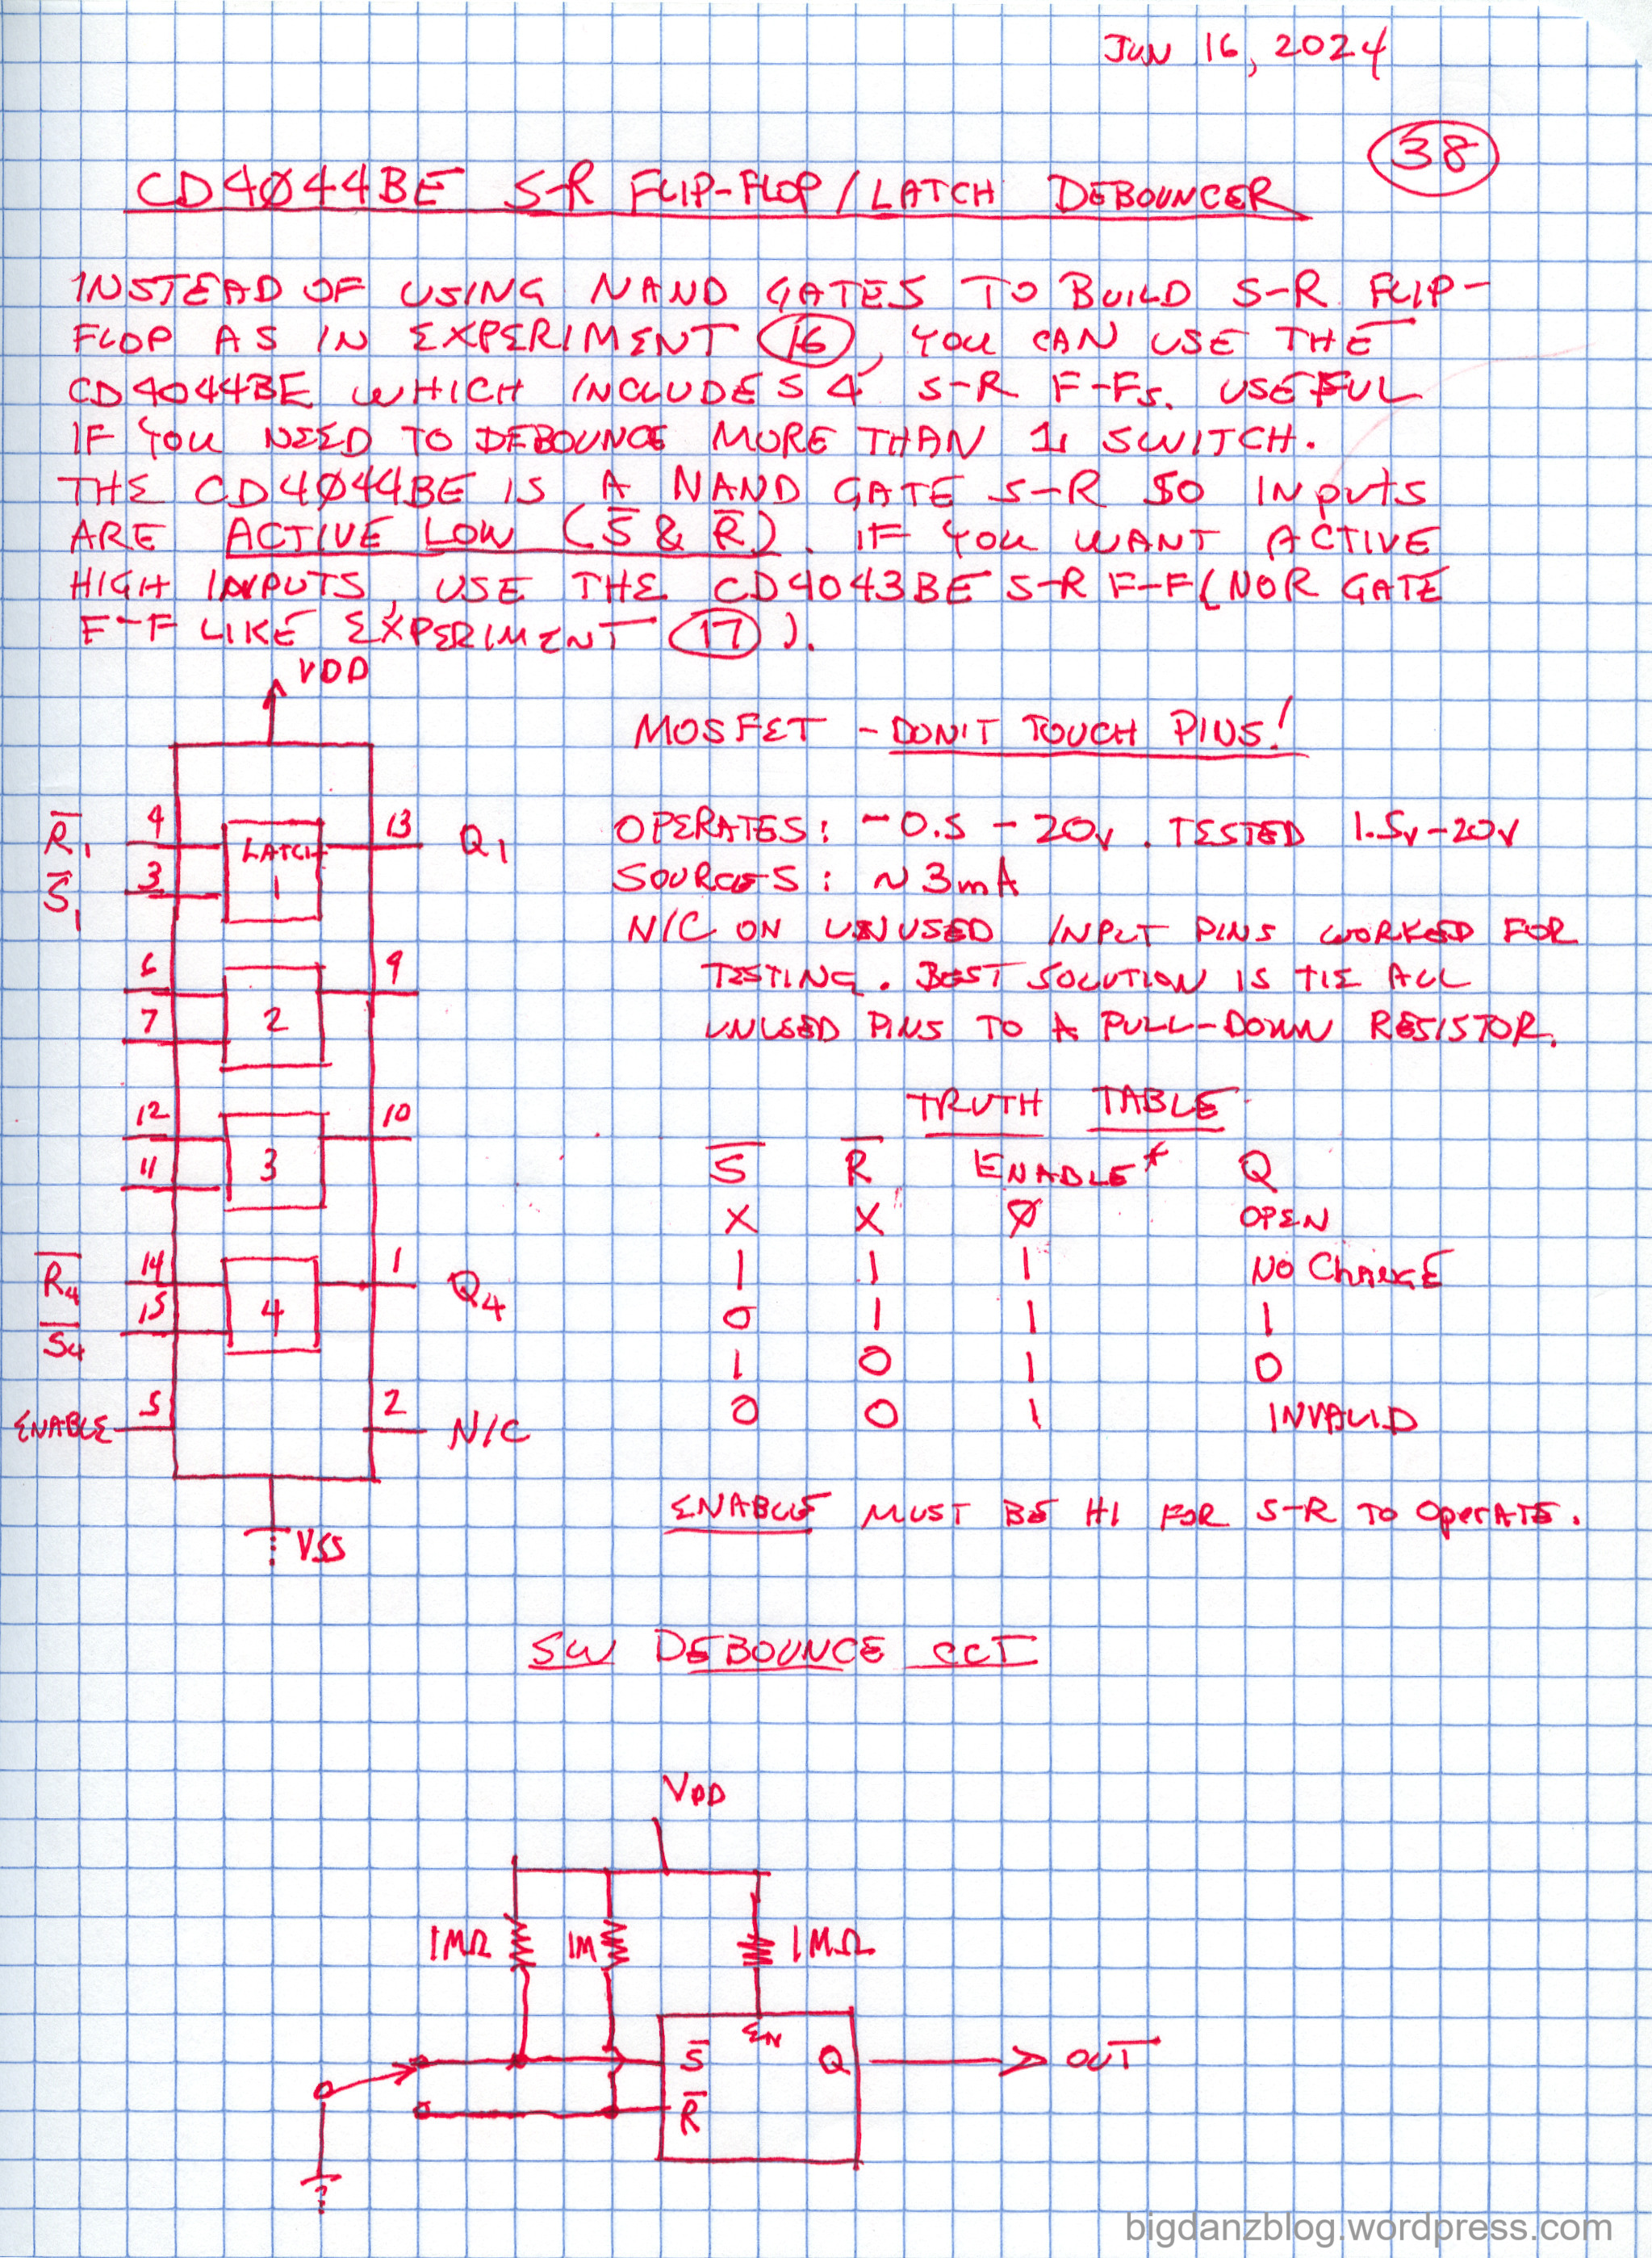 JUN 16, 2024
38
CD4Ø44BE S-R FLIP-FLOP/LATCH DEBOUNCER
INSTEAD OF USING NAND GATES TO BUILD S-R FLIP-
FLOP AS IN EXPERIMENT 16, YOU CAN USE THE
CD4044BE WHICH INCLUDES 4 S-R F-Fs. USEFUL
IF YOU NEED TO DEBOUNCE MORE THAN 1 SWITCH.
THE CD4Ø44BE IS A NAND GATE S-R SO INPUTS
ARE ACTIVE LOW (S̅ & R̅). IF YOU WANT ACTIVE
HIGH INPUTS, USE THE CD4043BE S-R F-F (NOR GATE
F-F LIKE EXPERIMENT 17).
VDD
MOSFET - DON'T TOUCH PINS!
R̅1 4 LATCH 13 Q1
S̅1 3 1
OPERATES: -0.5 - 20V. TESTED 1.5V-20V
SOURCES: ~3mA
N/C ON UNUSED INPUT PINS WORKED FOR
TESTING. BEST SOLUTION IS TIE ALL
UNUSED PINS TO A PULL-DOWN RESISTOR.
6 9
7 2
12 10
11 3
R̅4 14 1 Q4
S̅4 15 4
ENABLE 5 2 N/C
VSS
TRUTH TABLE
S̅ R̅ ENABLE* Q
X X Ø OPEN
1 1 1 NO CHANGE
0 1 1 1
1 0 1 0
0 0 1 INVALID
ENABLE MUST BE HI FOR S-R TO OPERATE.
SW DEBOUNCE CCT
VDD
1MΩ 1M 1MΩ
EN
S̅ Q OUT
R̅
bigdanzblog.wordpress.com